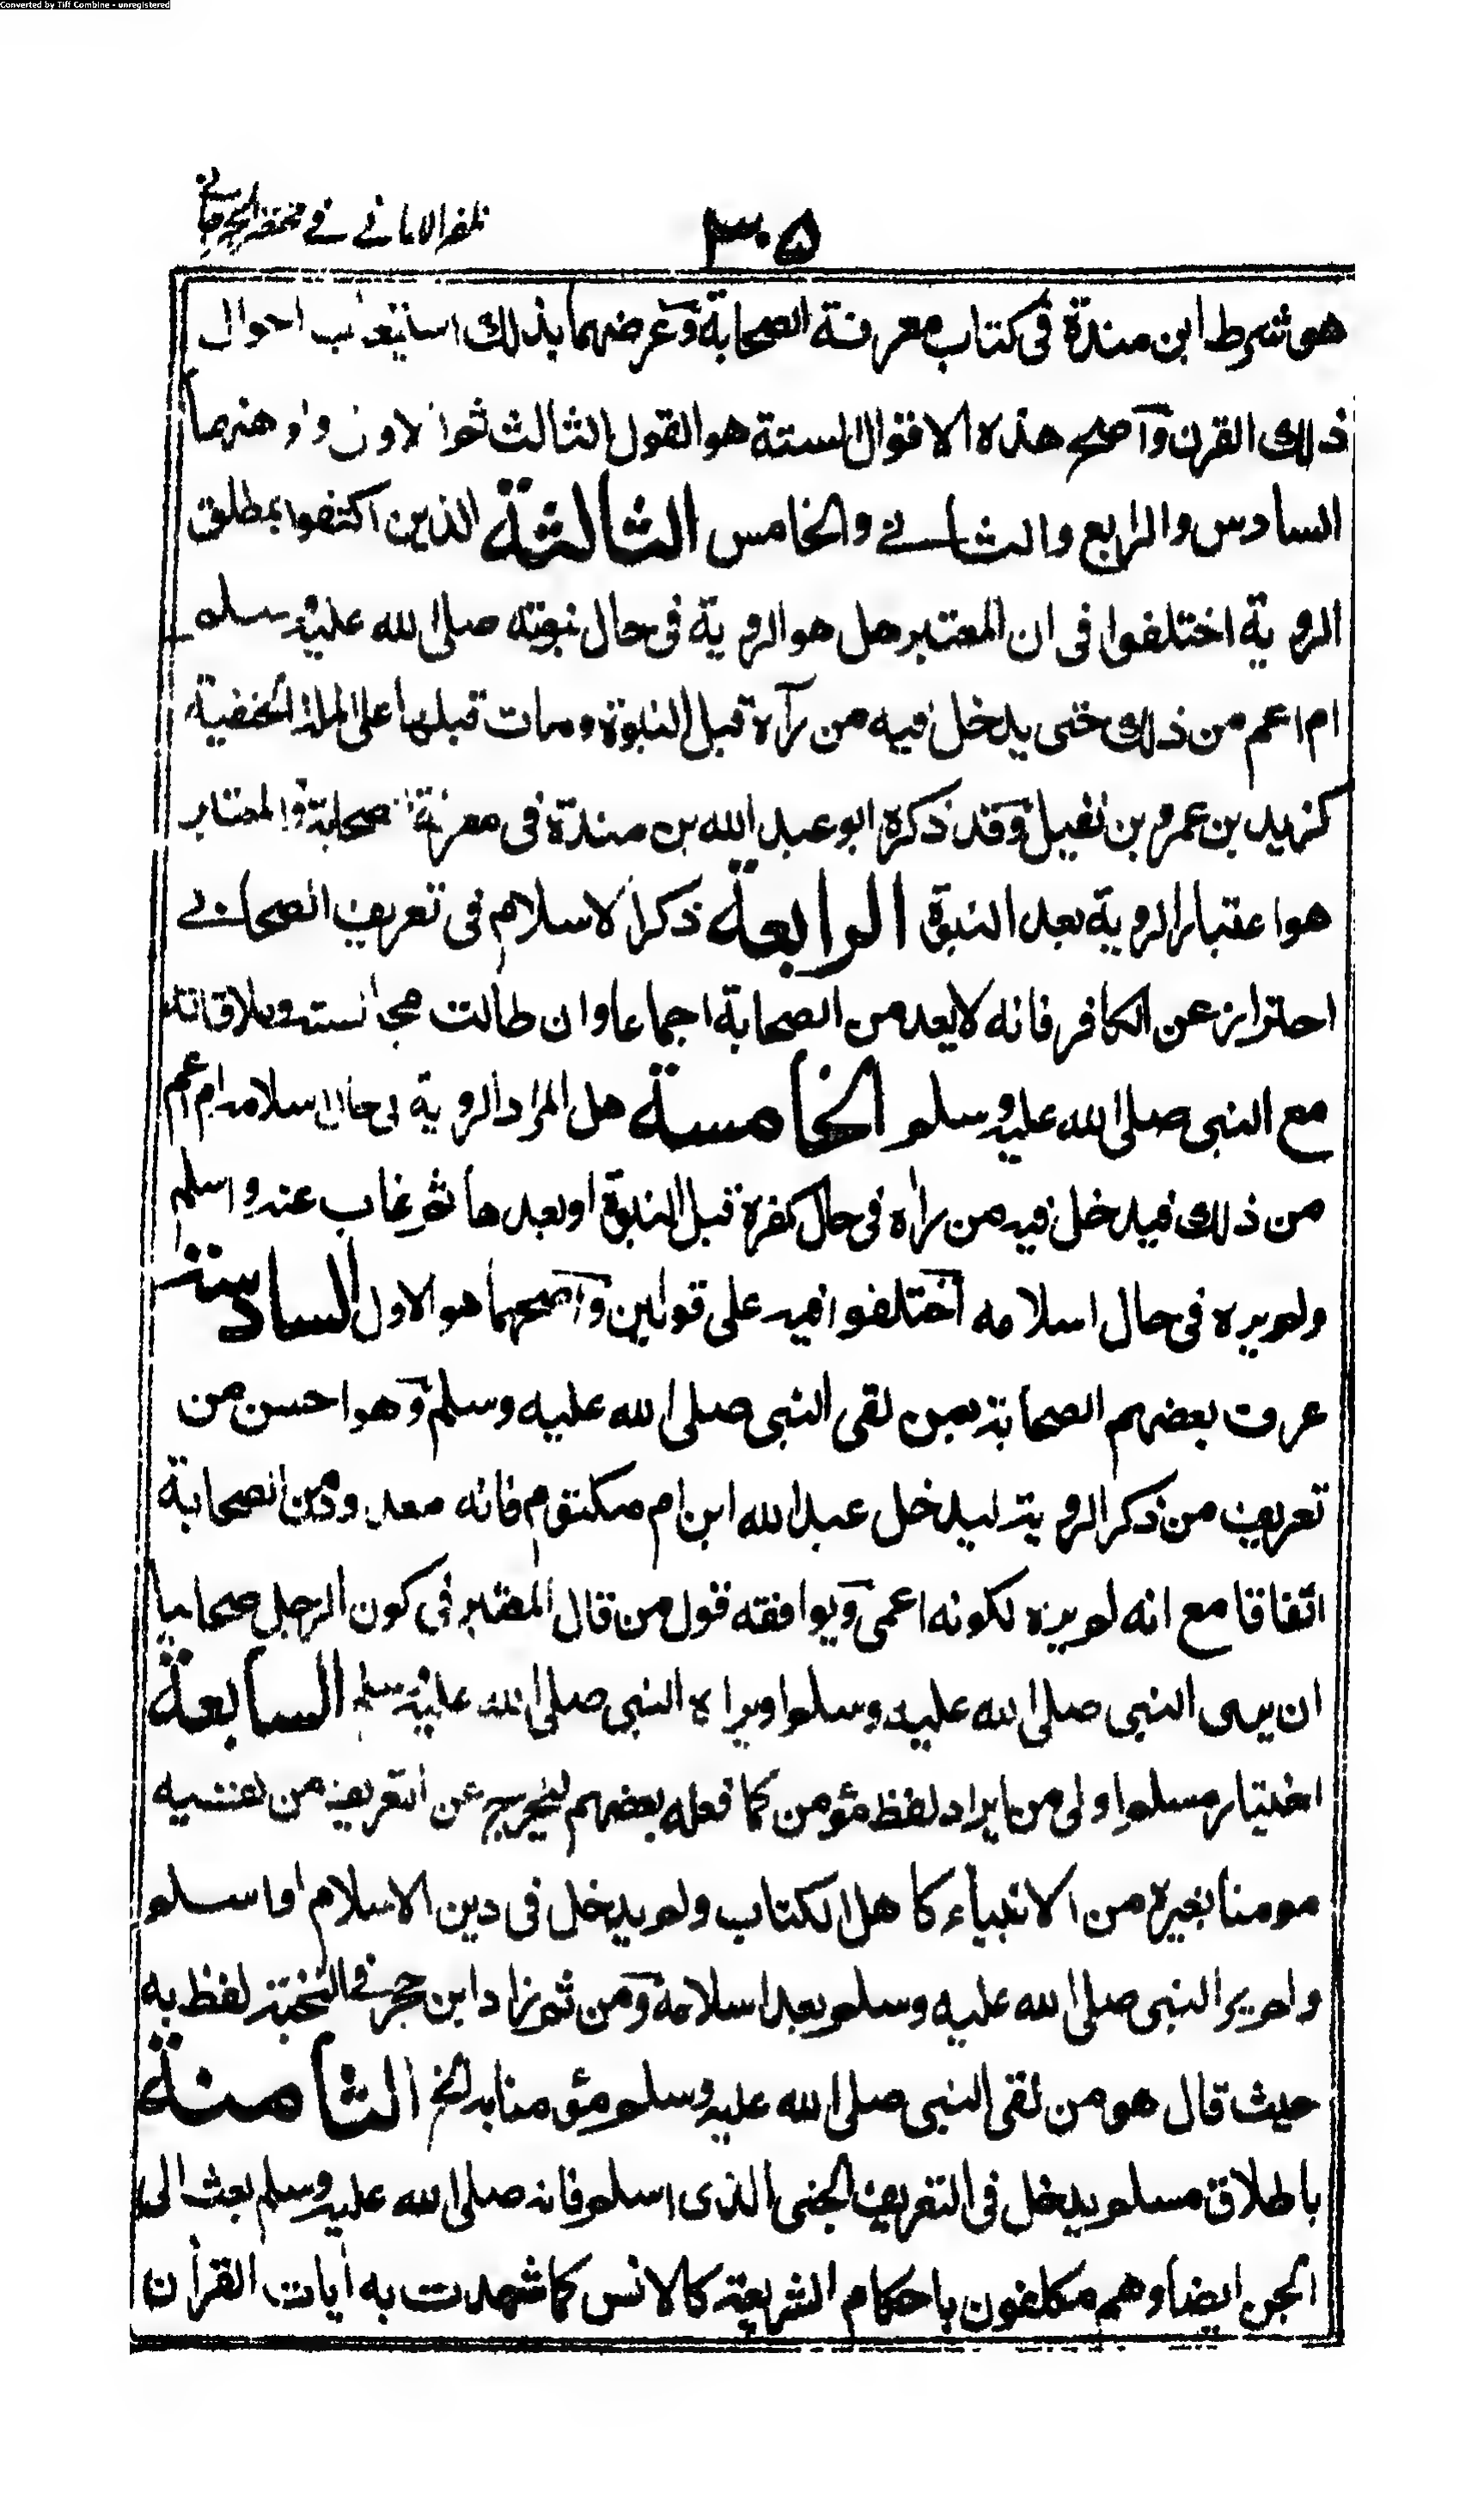 Converted by Tiff Combine - unregistered
٣٠٥
ظفر الامانے فے مختصر الجرجانے
هو شرط ابن مندة فى كتاب معرفة الصحابة وغرضهما بذلك استيعاب احوال
ذلك القرن واصح هذه الاقوال الستة هو القول الثالث ثم الاول واوهنهما
السادس والرابع والثانے والخامس الثالثة الذين اكتفوا بمطلق
الروية اختلفوا فى ان المعتبر هل هو الروية فى حال نبوته صلى الله عليه وسلم
ام اعم من ذلك حتى يدخل فيه من رآه قبل النبوة ومات قبلها على الملة الحنفية
كزيد بن عمرو بن نفيل وقد ذكره ابو عبد الله بن مندة فى معرفة الصحابة والمعتبر
هو اعتبار الروية بعد النبوة الرابعة ذكر الاسلام فى تعريف الصحابے
احتراز عن الكافر فانه لا يعد من الصحابة اجماعا وان طالت مجالسته وملاقاته
مع النبى صلى الله عليه وسلم الخامسة هل المراد الروية فى حال اسلامه ام اعم
من ذلك فيدخل فيه من رأه فى حال كفره قبل النبوة او بعدها ثم غاب عنه واسلم
ولم يره فى حال اسلامه اختلفوا فيه على قولين واصحهما هو الاول السادسة
عرف بعضهم الصحابة بمن لقى النبى صلى الله عليه وسلم وهو احسن من
تعريف من ذكر الروية ليدخل عبد الله ابن ام مكتوم فانه معدود من الصحابة
اتفاقا مع انه لم يره لكونه اعمى ويوافقه قول من قال المعتبر فى كون الرجل صحابيا
ان يرى النبى صلى الله عليه وسلم او يراه النبى صلى الله عليه وسلم السابعة
اختيار مسلم اولى من ايراد لفظ مؤمن كما فعله بعضهم ليخرج عن التعريف من لقيه
مومنا بغيره من الانبياء كاهل الكتاب ولم يدخل فى دين الاسلام او اسلم
ولم ير النبى صلى الله عليه وسلم بعد اسلامه ومن ثم زاد ابن حجر فى النخبة لفظ به
حيث قال هو من لقى النبى صلى الله عليه وسلم مؤمنا به الخ الثامنة
باطلاق مسلم يدخل فى التعريف الجنى الذى اسلم فانه صلى الله عليه وسلم بعث الى
الجن ايضا وهم مكلفون باحكام الشريعة كالانس كما شهدت به أيات القرأن